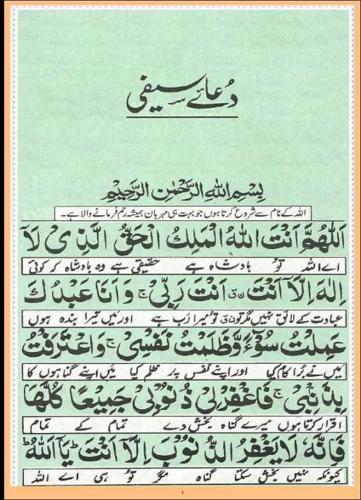 دُعائے سیفی
بِسْمِ اللهِ الرَّحْمٰنِ الرَّحِيْمِ
اللہ کے نام سے شروع کرتا ہوں جو بہت ہی مہربان ہمیشہ رحم فرمانے والا ہے۔
اَللّٰهُمَّ اَنْتَ اللهُ الْمَلِكُ الْحَقُّ الَّذِىْ لَآ
اے اللہ تُو بادشاہ ہے حقیقی ہے وہ بادشاہ کہ کوئی
اِلٰهَ اِلَّا اَنْتَ اَنْتَ رَبِّىْ ج وَاَنَا عَبْدُكَ
عبادت کے لائق نہیں مگر تو تُو میرا رب ہے اور میں تیرا بندہ ہوں
عَمِلْتُ سُوْٓءً وَّظَلَمْتُ نَفْسِىْ ج وَاعْتَرَفْتُ
میں نے بُرا کام کیا اور اپنے نفس پر ظلم کیا میں اپنے گناہوں کا
بِذَنْبِىْ ج فَاغْفِرْلِىْ ذُنُوْبِىْ جَمِيْعًا كُلَّهَا
اقرار کرتا ہوں میرے گناہ بخش دے تمام کے تمام
فَاِنَّهٗ لَا يَغْفِرُ الذُّنُوْبَ اِلَّا اَنْتَ ط يَآ اَللهُ
کیونکہ نہیں بخش سکتا گناہ مگر تُو ہی اے اللہ
۱